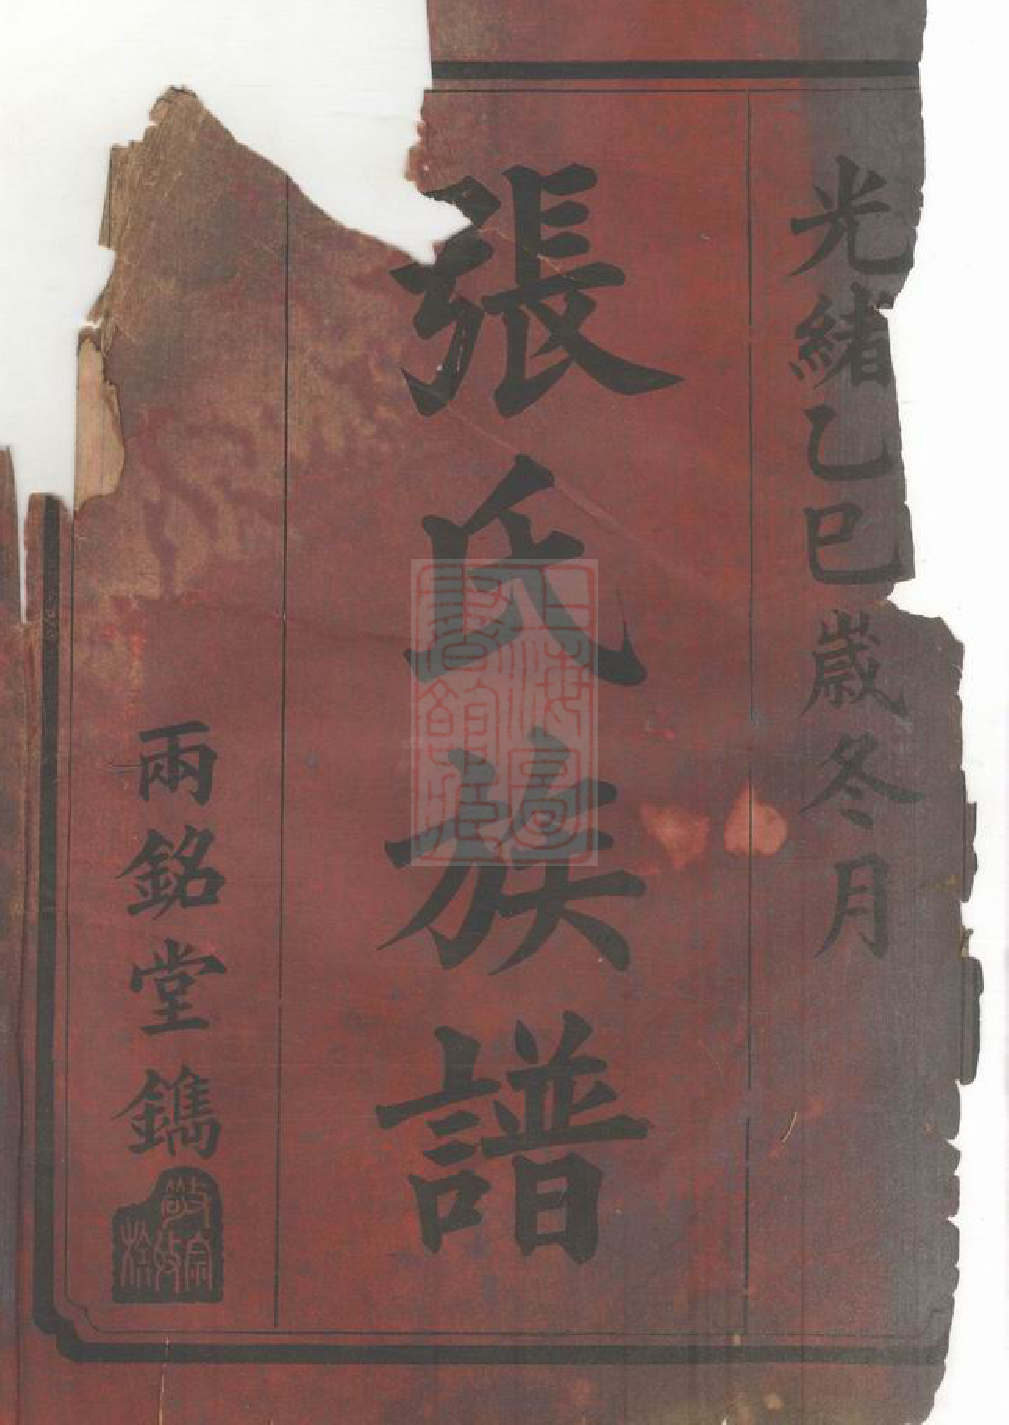 光緒乙巳歲冬月
張氏族譜
兩銘堂鐫
上海圖書館藏